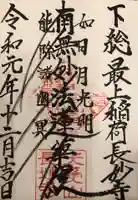 下総最上稲荷長妙寺
如日月光明
南無妙法蓮華経
能除諸幽冥
令和元年十二月吉日